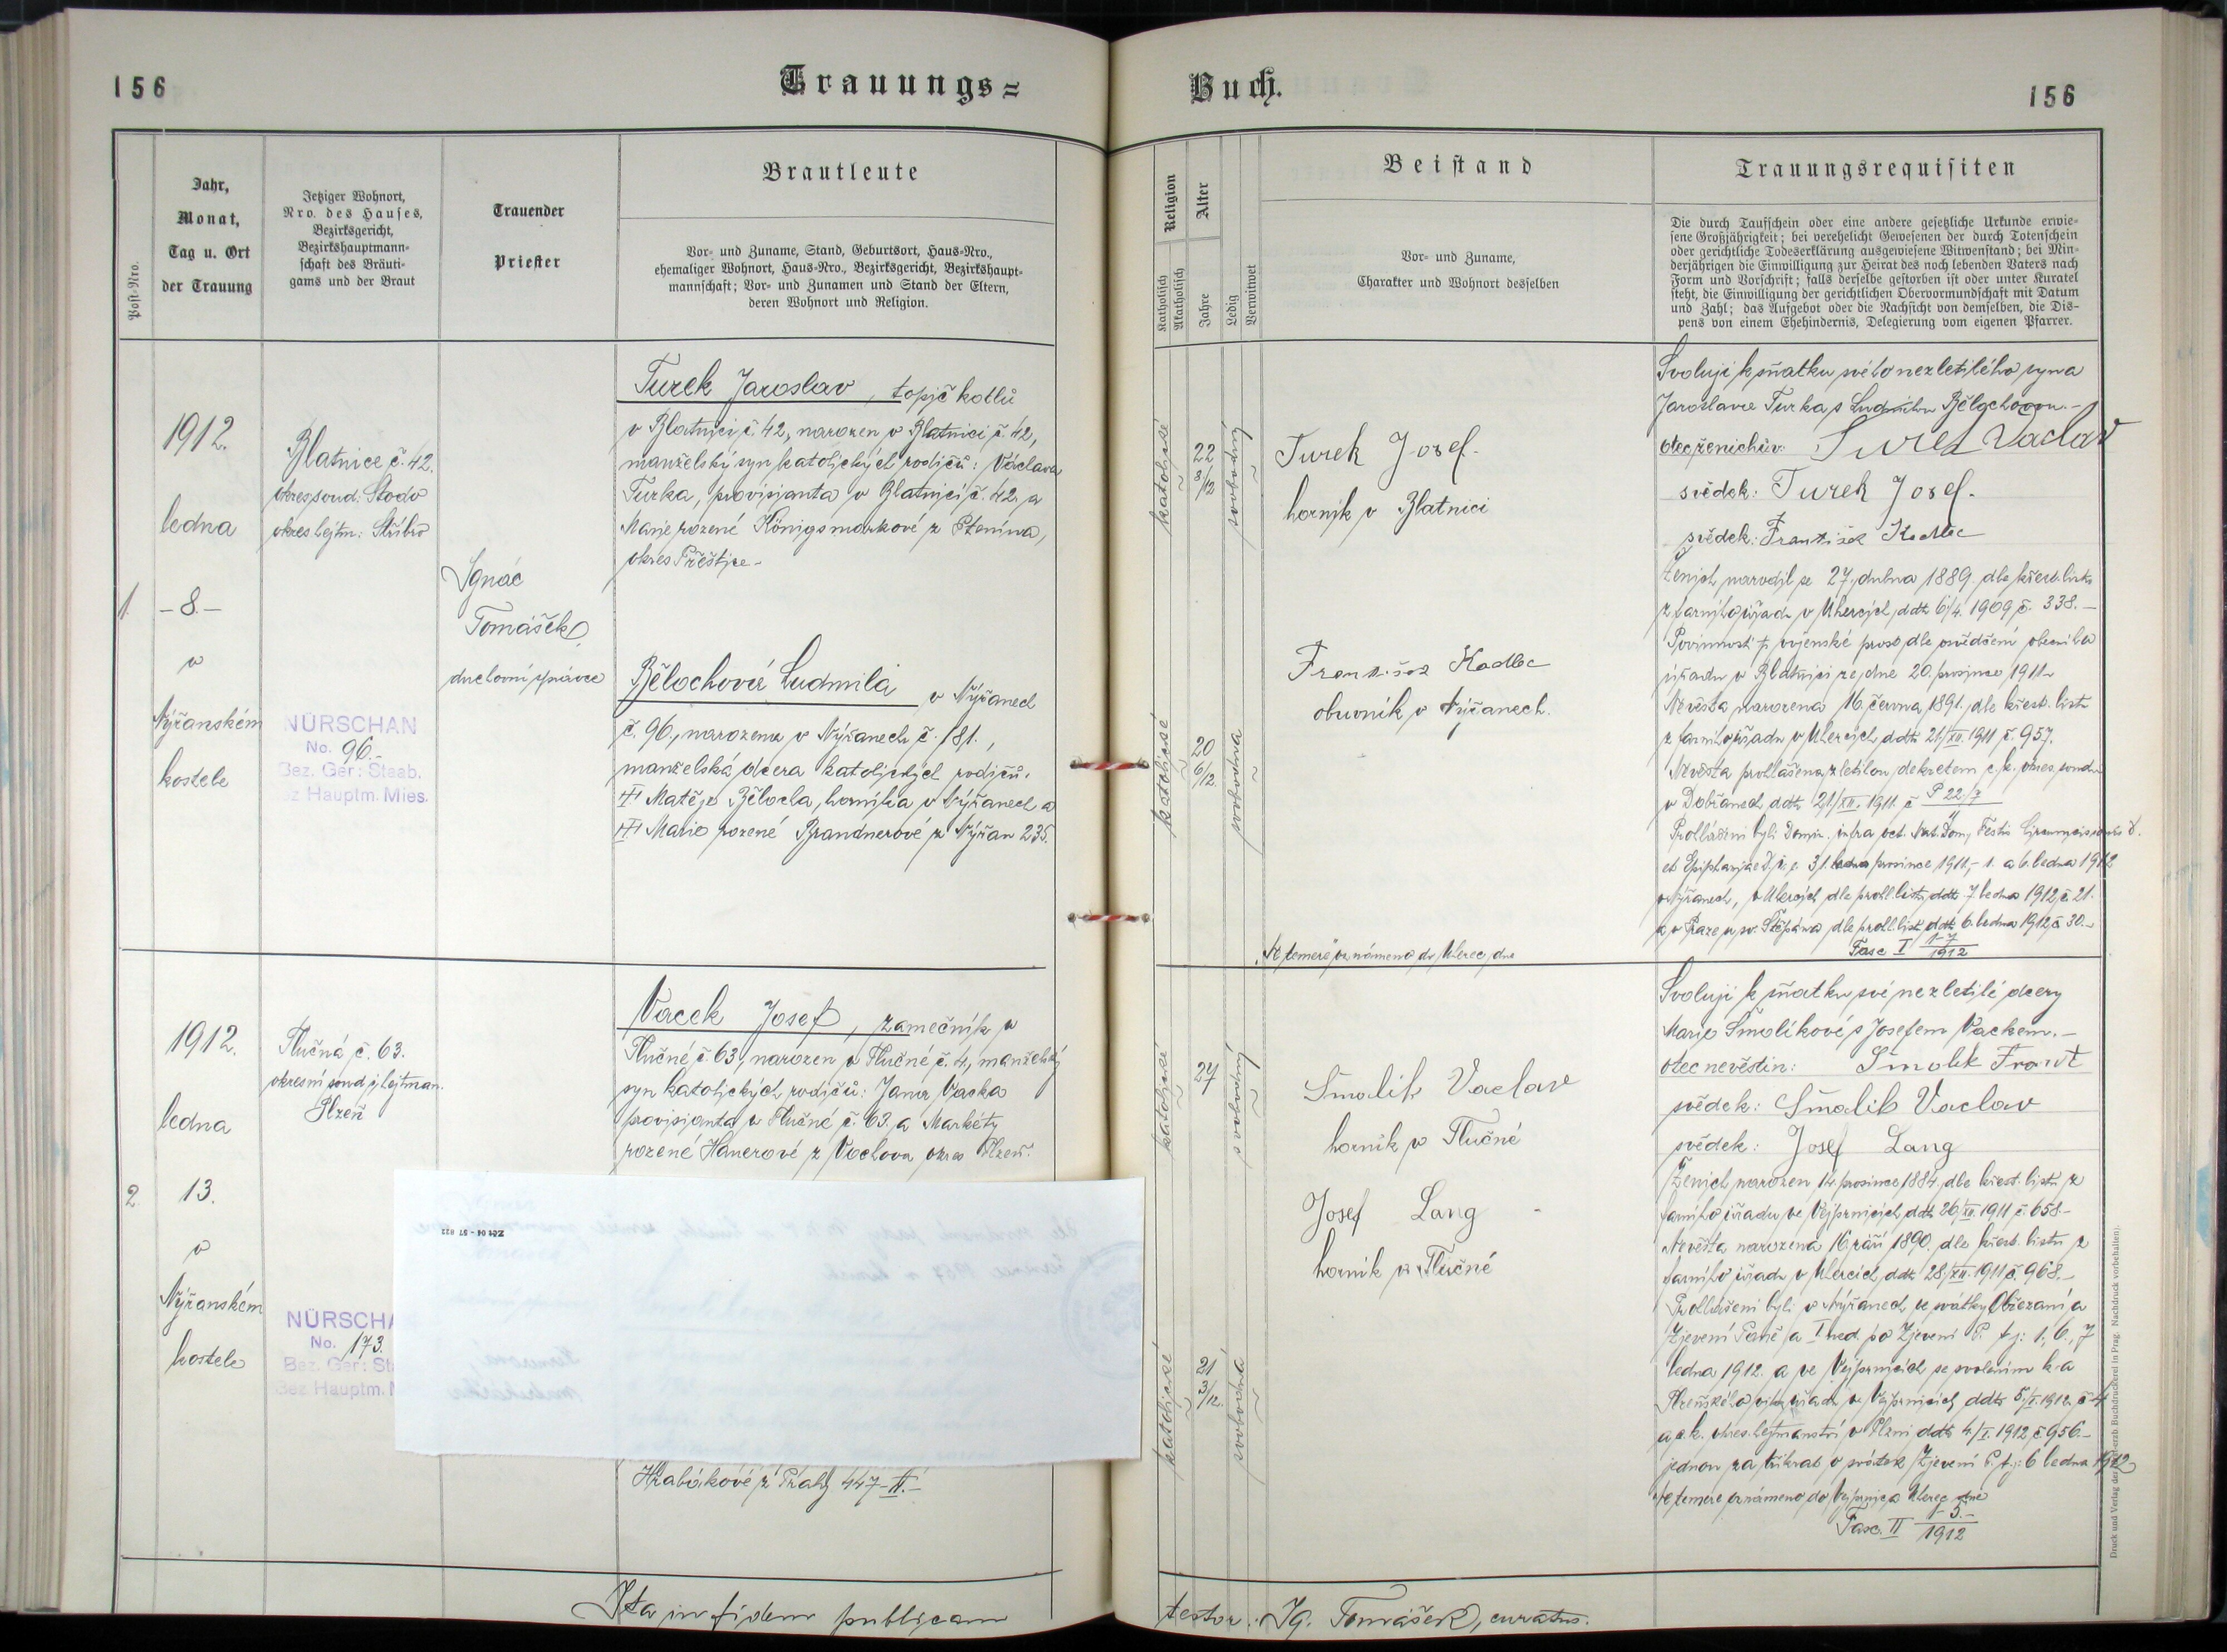 156
Trauungs=
Buch.
156
Post-Nro.
Jahr,
Monat,
Tag u. Ort
der Trauung
Jetziger Wohnort,
Nro. des Hauses,
Bezirksgericht,
Bezirkshauptmann-
schaft des Bräuti-
gams und der Braut
Trauender
Priester
Brautleute
Vor- und Zuname, Stand, Geburtsort, Haus-Nro.,
ehemaliger Wohnort, Haus-Nro., Bezirksgericht, Bezirkshaupt-
mannschaft; Vor- und Zunamen und Stand der Eltern,
deren Wohnort und Religion.
Religion
Katholisch
Akatholisch
Alter
Jahre
Ledig
Verwitwet
Beistand
Vor- und Zuname,
Charakter und Wohnort desselben
Trauungsrequisiten
Die durch Taufschein oder eine andere gesetzliche Urkunde erwie-
sene Großjährigkeit; bei verehelicht Gewesenen der durch Totenschein
oder gerichtliche Todeserklärung ausgewiesene Witwenstand; bei Min-
derjährigen die Einwilligung zur Heirat des noch lebenden Vaters nach
Form und Vorschrift; falls derselbe gestorben ist oder unter Kuratel
steht, die Einwilligung der gerichtlichen Obervormundschaft mit Datum
und Zahl; das Aufgebot oder die Nachsicht von demselben, die Dis-
pens von einem Ehehindernis, Delegierung vom eigenen Pfarrer.
1.
1912.
ledna
- 8. -
v
Nýřanském
kostele
Blatnice č. 42.
okres. soud: Stodo
okres. hejtm: Stříbro
NÜRSCHAN
No. 96.-
Bez. Ger: Staab.
Bez Hauptm. Mies.
Ignác
Tomášek,
duchovní správce
Turek Jaroslav, topič kotlů
v Blatnici č. 42, narozen v Blatnici č. 42,
manželský syn katolických rodičů: Václava
Turka, provisianta v Blatnici č. 42 a
Marie rozené Königsmarkové z Ptenína,
okres Přeštice-
Bělochová Ludmila v Nýřanech
č. 96, narozena v Nýřanech č. 181.,
manželská dcera katolických rodičů:
Matěje Bělocha, horníka v Nýřanech a
Marie rozené Brandnerové z Nýřan 235.
katolické
22
8/12
svobodný
katolické
20
6/12.
svobodna
Turek Josef.
horník v Blatnici
František Kadlec
obuvník v Nýřanech.
Svoluji k sňatku svého nezletilého syna
Jaroslava Turka s Ludmilou Bělochovou.-
otec ženichův: Turek Vaclav
svědek: Turek Josef.
svědek: František Kadlec
Ženich narodil se 27. dubna 1889. dle křest. listu
z farního úřadu v Uhercích ddto 6/4. 1909 č. 338.-
Povinnosti vojenské prost dle osvědčení obecního
úřadu v Blatnici ze dne 20. prosince 1911.-
Nevěsta narozena 16. června 1891. dle křest. listu
z farního úřadu v Uhercích ddto 21/XII. 1911 č. 957.
Nevěsta prohlášena zletilou dekretem c. k. okres. soudu
v Dobřanech ddto 21/XII. 1911. č P 22/7
et Epiphaniae D. t. j. 31. prosince 1911,- 1. a 6. ledna 1912
v Nýřanech, v Uhercích dle prohl. listu ddto 7. ledna 1912 č. 21.
a v Praze u sv. Štěpána dle prohl. listu ddto 6. ledna 1912 č 30.-
Fasc I 1-7
1912
2.
1912.
ledna
13.
v
Nýřanském
kostele
Tlučná č. 63.
okresní soud i hejtman.
Plzeň
NÜRSCHA
No. 173.
Bez. Ger: St
Bez Hauptm. M
Vacek Josef, zamečník v
Tlučné č. 63, narozen v Tlučné č. 4, manželský
syn katolických rodičů: Jana Vacka
provisianta v Tlučné č. 63. a Markéty
rozené Hanerové z Vochova okres Plzeň.
ZČt 04 - 57 822
Hrabákové z Prahy 447-II.-
katolické
27
svobodný
katolické
21
3/12.
svobodná
Šmolik Vaclav
horník v Tlučné
Josef Lang
horník v Tlučné
Svoluji k sňatku své nezletilé dcery
Marie Šmolíkové s Josefem Vackem.-
otec nevěstin: Šmolik Frant
svědek: Šmolik Vaclav
svědek: Josef Lang
Ženich narozen 14. prosince 1884, dle křest. listu z
farního úřadu ve Vejprnicích ddto 26/XII. 1911 č. 658.-
Nevěsta narozena 16. září 1890. dle křest. listu z
farního úřadu v Uhercích ddto 28/XII. 1911 č. 968.-
Prohlášeni byli v Nýřanech ve svátky Obřezání a
Zjevení Páně a I ned. po Zjevení P. t. j: 1., 6., 7
ledna 1912. a ve Vejprnicích se svolením k. a
a c. k. okres. hejtmanství v Plzni ddto 4/I. 1912 č 956.-
jednou za třikrát v svátek Zjevení P. t. j: 6 ledna 1912
Fasc. II 1-5.-
1912
Ita in fidem publicam
testor: Ig. Tomášek, curatus.